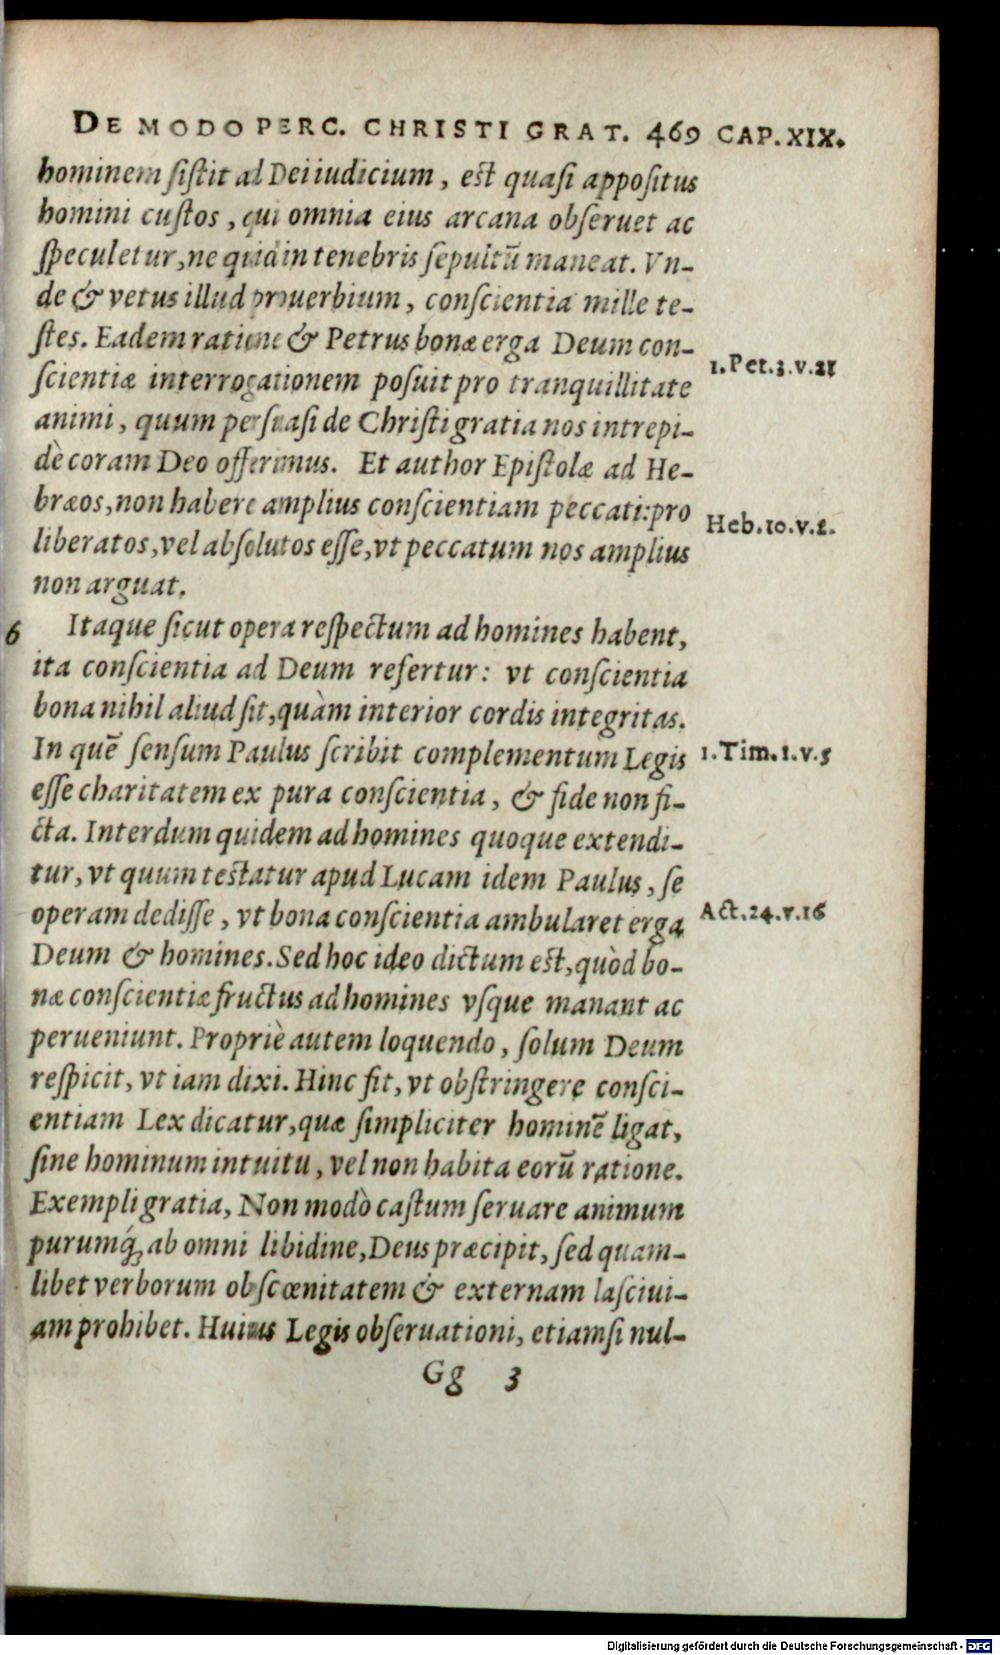 DE MODO PERC. CHRISTI GRAT. 469 CAP. XIX.
hominem ſiſtit ad Dei iudicium, eſt quaſi appoſitus
homini cuſtos, qui omnia eius arcana obſeruet ac
ſpeculetur, ne quid in tenebris ſepultū maneat. Vn-
de & vetus illud prouerbium, conſcientia mille te-
ſtes. Eadem ratione & Petrus bonæ erga Deum con-
1. Pet. 3. v. 21
ſcientiæ interrogationem poſuit pro tranquillitate
animi, quum perſuaſi de Chriſti gratia nos intrepi-
dè coram Deo offerimus. Et author Epiſtolæ ad He-
bræos, non habere amplius conſcientiam peccati: pro
Heb. 10. v. 2.
liberatos, vel abſolutos eſſe, vt peccatum nos amplius
non arguat.
6 Itaque ſicut opera reſpectum ad homines habent,
ita conſcientia ad Deum refertur: vt conſcientia
bona nihil aliud ſit, quàm interior cordis integritas.
In quē ſenſum Paulus ſcribit complementum Legis
1. Tim. 1. v. 5
eſſe charitatem ex pura conſcientia, & fide non fi-
cta. Interdum quidem ad homines quoque extendi-
tur, vt quum teſtatur apud Lucam idem Paulus, ſe
operam dediſſe, vt bona conſcientia ambularet erga
Act. 24. v. 16
Deum & homines. Sed hoc ideo dictum eſt, quòd bo-
næ conſcientiæ fructus ad homines vſque manant ac
perueniunt. Propriè autem loquendo, ſolum Deum
reſpicit, vt iam dixi. Hinc fit, vt obſtringere conſci-
entiam Lex dicatur, quæ ſimpliciter hominē ligat,
ſine hominum intuitu, vel non habita eorū ratione.
Exempli gratia, Non modò caſtum ſeruare animum
purumq́; ab omni libidine, Deus præcipit, ſed quam-
libet verborum obſcœnitatem & externam laſciui-
am prohibet. Huius Legis obſeruationi, etiamſi nul-
Gg 3
Digitalisierung gefördert durch die Deutsche Forschungsgemeinschaft - DFG